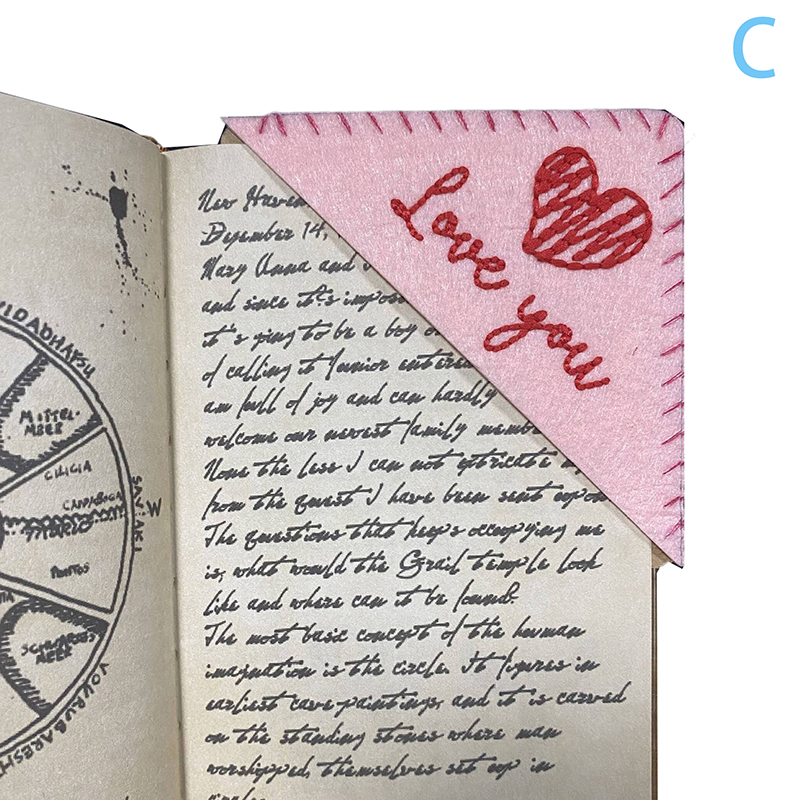 C
Love you
New Haven
Desember 14,
Mary Anna and
and since it's impos
it's going to be a boy
of calling it Junior entered
am full of joy and can hardly
welcome our newest family membe
None the less I can not extricate
from the quest I have been sent upon
The questions that keeps occupying me
is, what would the Grail temple look
like and where can it be found.
The most basic concept of the human
imagination is the circle. It figures in
earliest cave paintings, and it is carved
on the standing stones where man
worshipped, themselves set up in
VIDADHAFSU
MITTEL-
MEER
CILICIA
SAVLAKI
W
PONTOS
SCHWARZES
MEER
VOURUBARESHTI